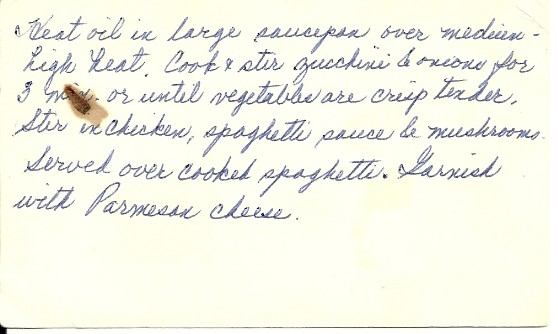 Heat oil in large saucepan over medium-
high heat. Cook & stir zucchini & onions for
3 min. or until vegetables are crisp tender.
Stir in chicken, spaghetti sauce & mushrooms.
Served over cooked spaghetti. Garnish
with Parmesan cheese.